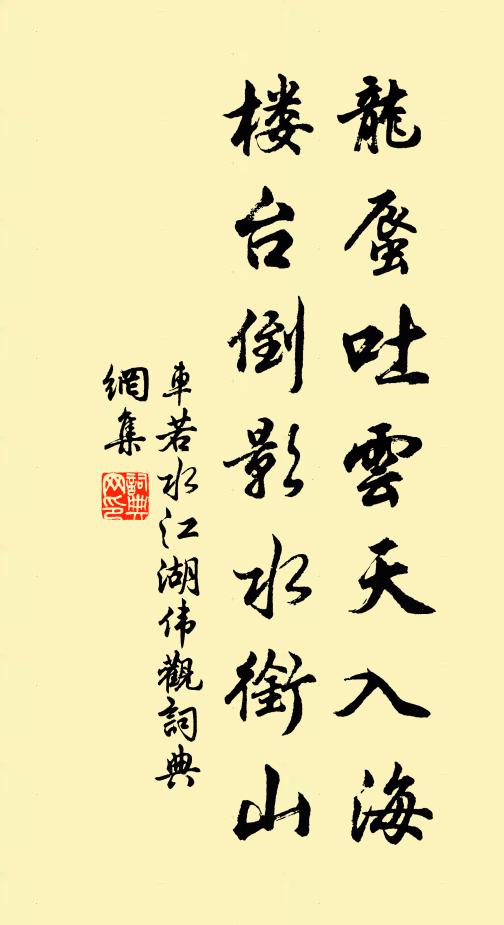 龍蜃吐雲天入海
楼台倒影水銜山
車若水江湖伟觀詞典
網集
詞典
网印